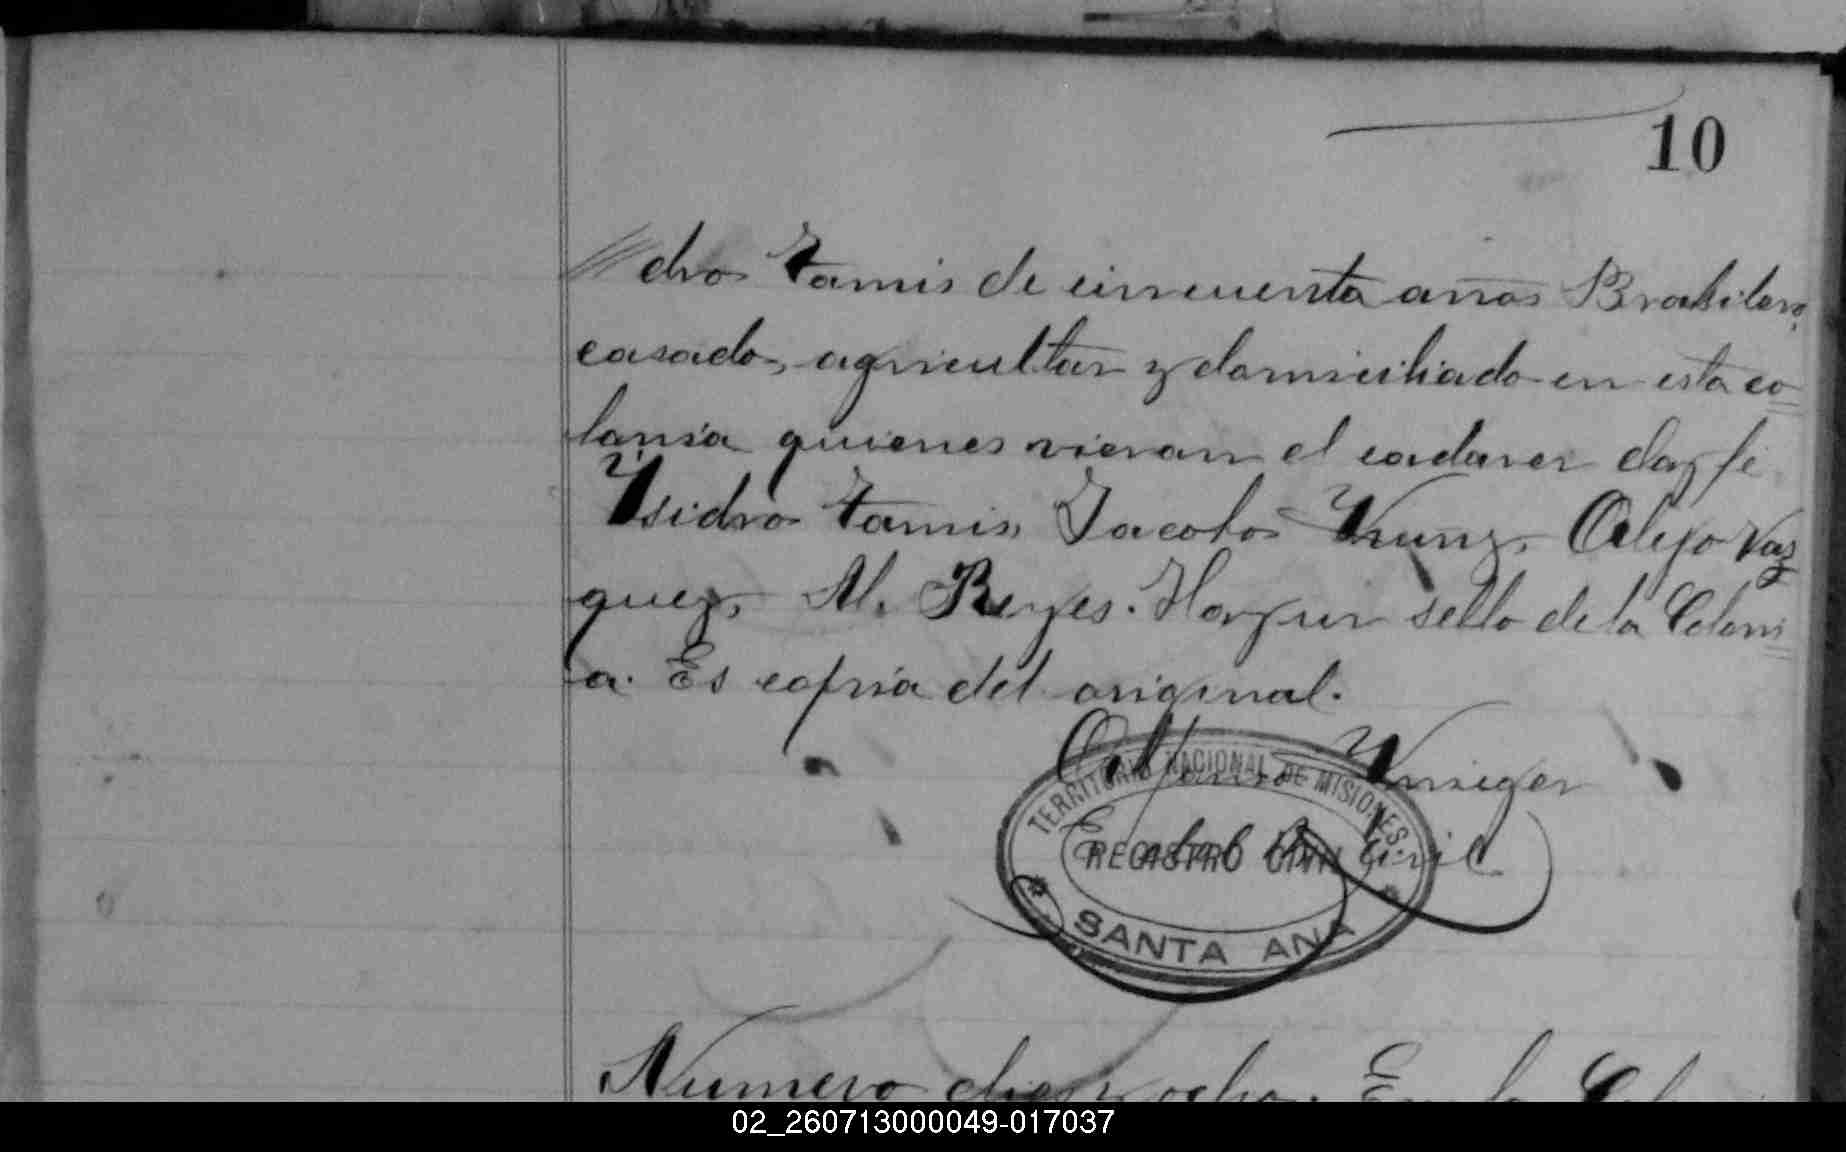 10
dro Tamis de cincuenta años Brasilero,
casado, agricultor y domiciliado en esta co
lonia quienes vieron el cadaver doy fe
Ysidro Tamis, Jacobo Kunz, Alejo Vaz
quez, M. Reyes. Hay un sello de la Coloni
a. Es copia del original.
Alfonso
TERRITORIO NACIONAL DE MISIONES.
REGISTRO CIVIL
SANTA ANA
Numero diez y ocho. En la
02_260713000049-017037